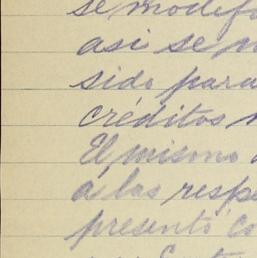 se modifi
asi se
sido para
créditos
El mismo
á las respe
presentó co